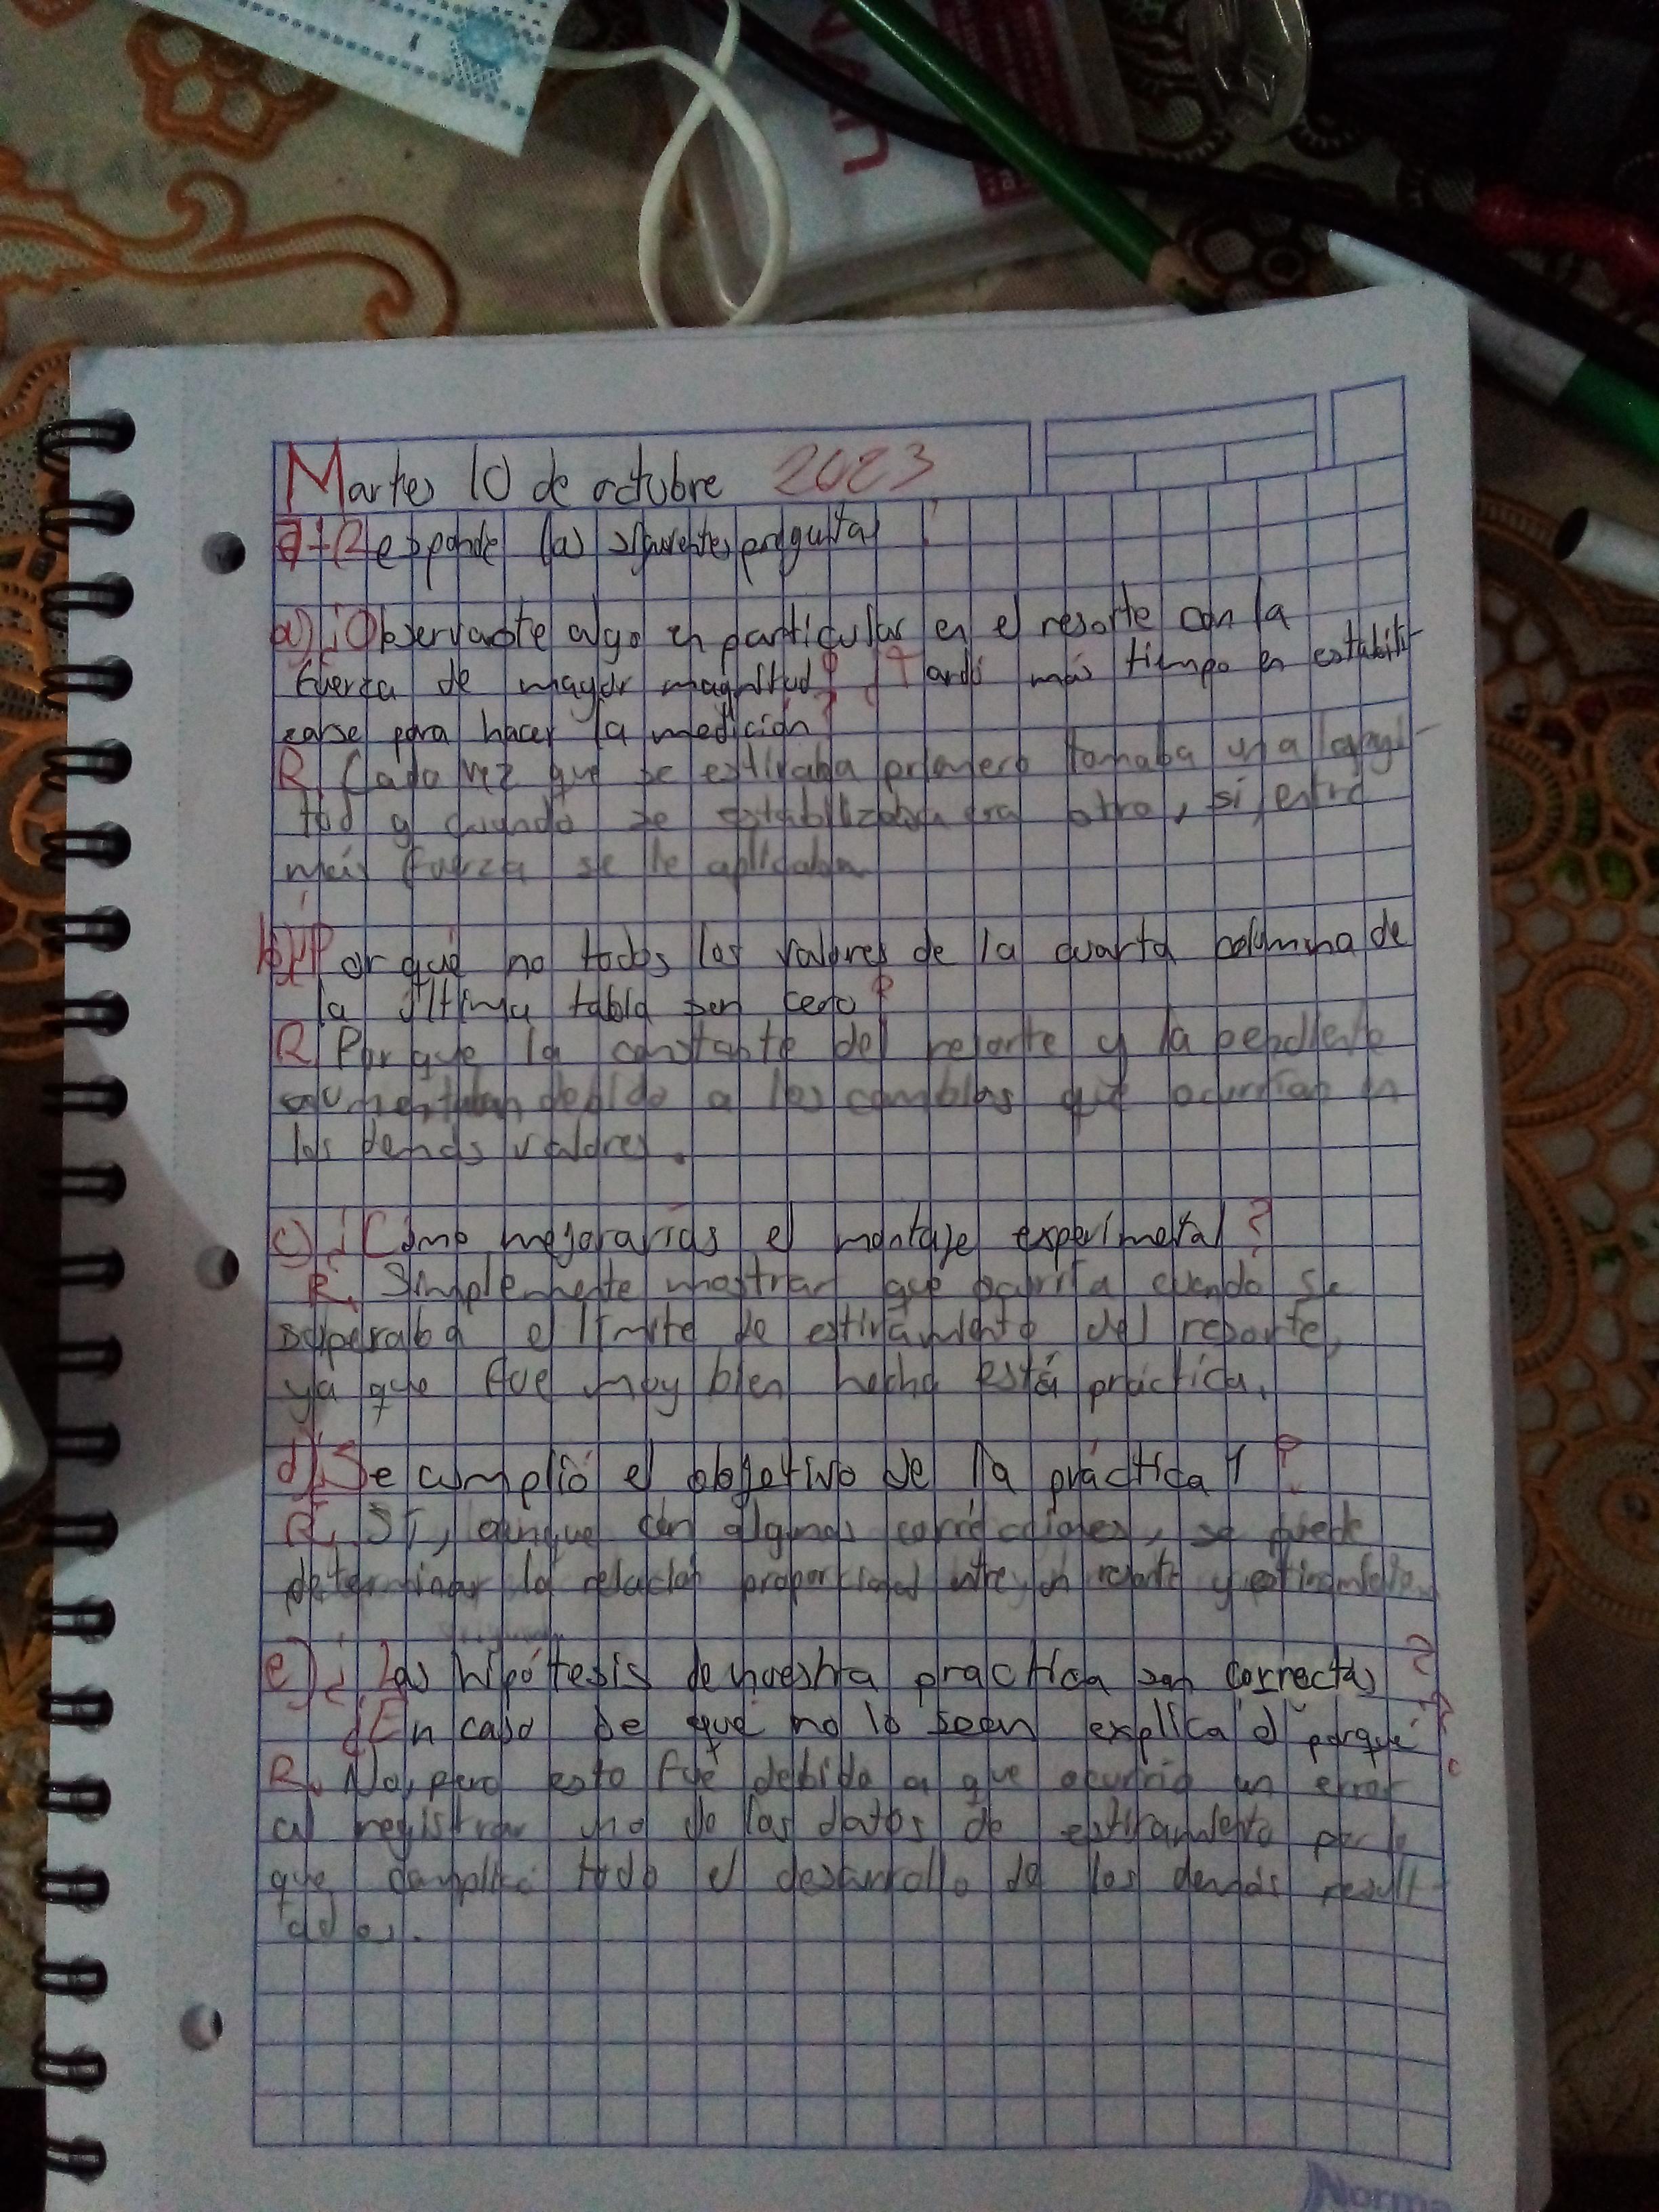 Martes 10 de octubre 2023
Responde las siguientes preguntas
a) ¿Observaste algo en particular en el resorte con la
fuerza de mayor magnitud? ¿Tardó más tiempo en estabili-
zarse para hacer la medición?
R. Cada vez que se estiraba primero tomaba una longi-
tud y cuando se estabilizaba era otro, si, entre
más fuerza se le aplicaba
b) ¿Por qué no todos los valores de la cuarta columna de
la última tabla son cero?
R. Porque la constante del resorte y la pendiente
aumentaban debido a los cambios que ocurrían en
los demás valores.
c) ¿Cómo mejorarías el montaje experimetal?
R. Simplemente mostrar que ocurría cuando se
superaba el límite de estiramiento del resorte,
ya que fue muy bien hecha está práctica.
d) ¿Se cumplió el objetivo de la práctica 1?
R. Sí, aunque con algunas correcciones, se puede
determinar la relación proporcional entre un resorte y estiramiento
e) ¿Las hipótesis de nuestra practica son correctas?
¿En caso de que no lo sean explica el porqué?
R. No, pero esto fue debido a que ocurrió un error
al registrar uno de los datos de estiramiento por lo
que todo el desarrollo de los demás result-
ados.
Norma